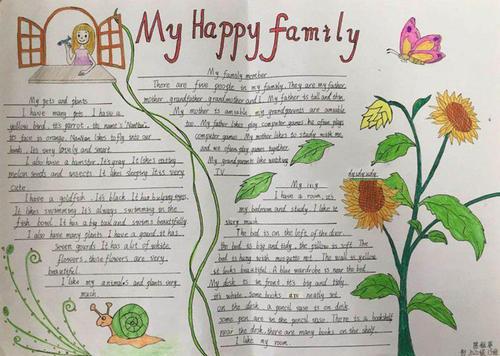 My Happy family
My family member
There are five people in my family. They are my father,
mother, grandfather, grandmother and I. My father is tall and thin.
My mother is amiable, my grandparents are amiable
too. My father likes play computer games. He often plays
computer games. My mother likes to study with me,
and we often play games together.
My grandparents like watching
TV.
My pets and plants
I have many pets. I have a
yellow bird. It's parrot. Its name's "NanNan".
Its face is orange. NanNan likes to fly into our
hands. It's very lovely and smart.
I also have a hamster. It's gray. It likes eating
melon seeds and insects. It likes sleeping. It's very
cute.
I have a goldfish. It's black. It has big eyes.
It likes swimming. It's always swimming in the
fish bowl. It has a big tail and swims beautifully.
I also have many plants. I have a gourd. It has
seven gourds. It has a lot of white
flowers, those flowers are very
beautiful.
I like my animals and plants very
much.
I have a room. It's
my bedroom and study. I like it
very much.
The bed is on the left of the door.
The bed is big and tidy, the pillow is soft. The
bed is hung with mosquito net. The wall is yellow.
It looks beautiful. A blue wardrobe is near the bed.
My desk is in front. It's big and tidy.
It's white. Some books are neatly set
on the desk, a pencil vase is on desk
some pen are in the pencil vase. There is a bookshelf
near the desk. There are many books on the shelf.
I like my room.